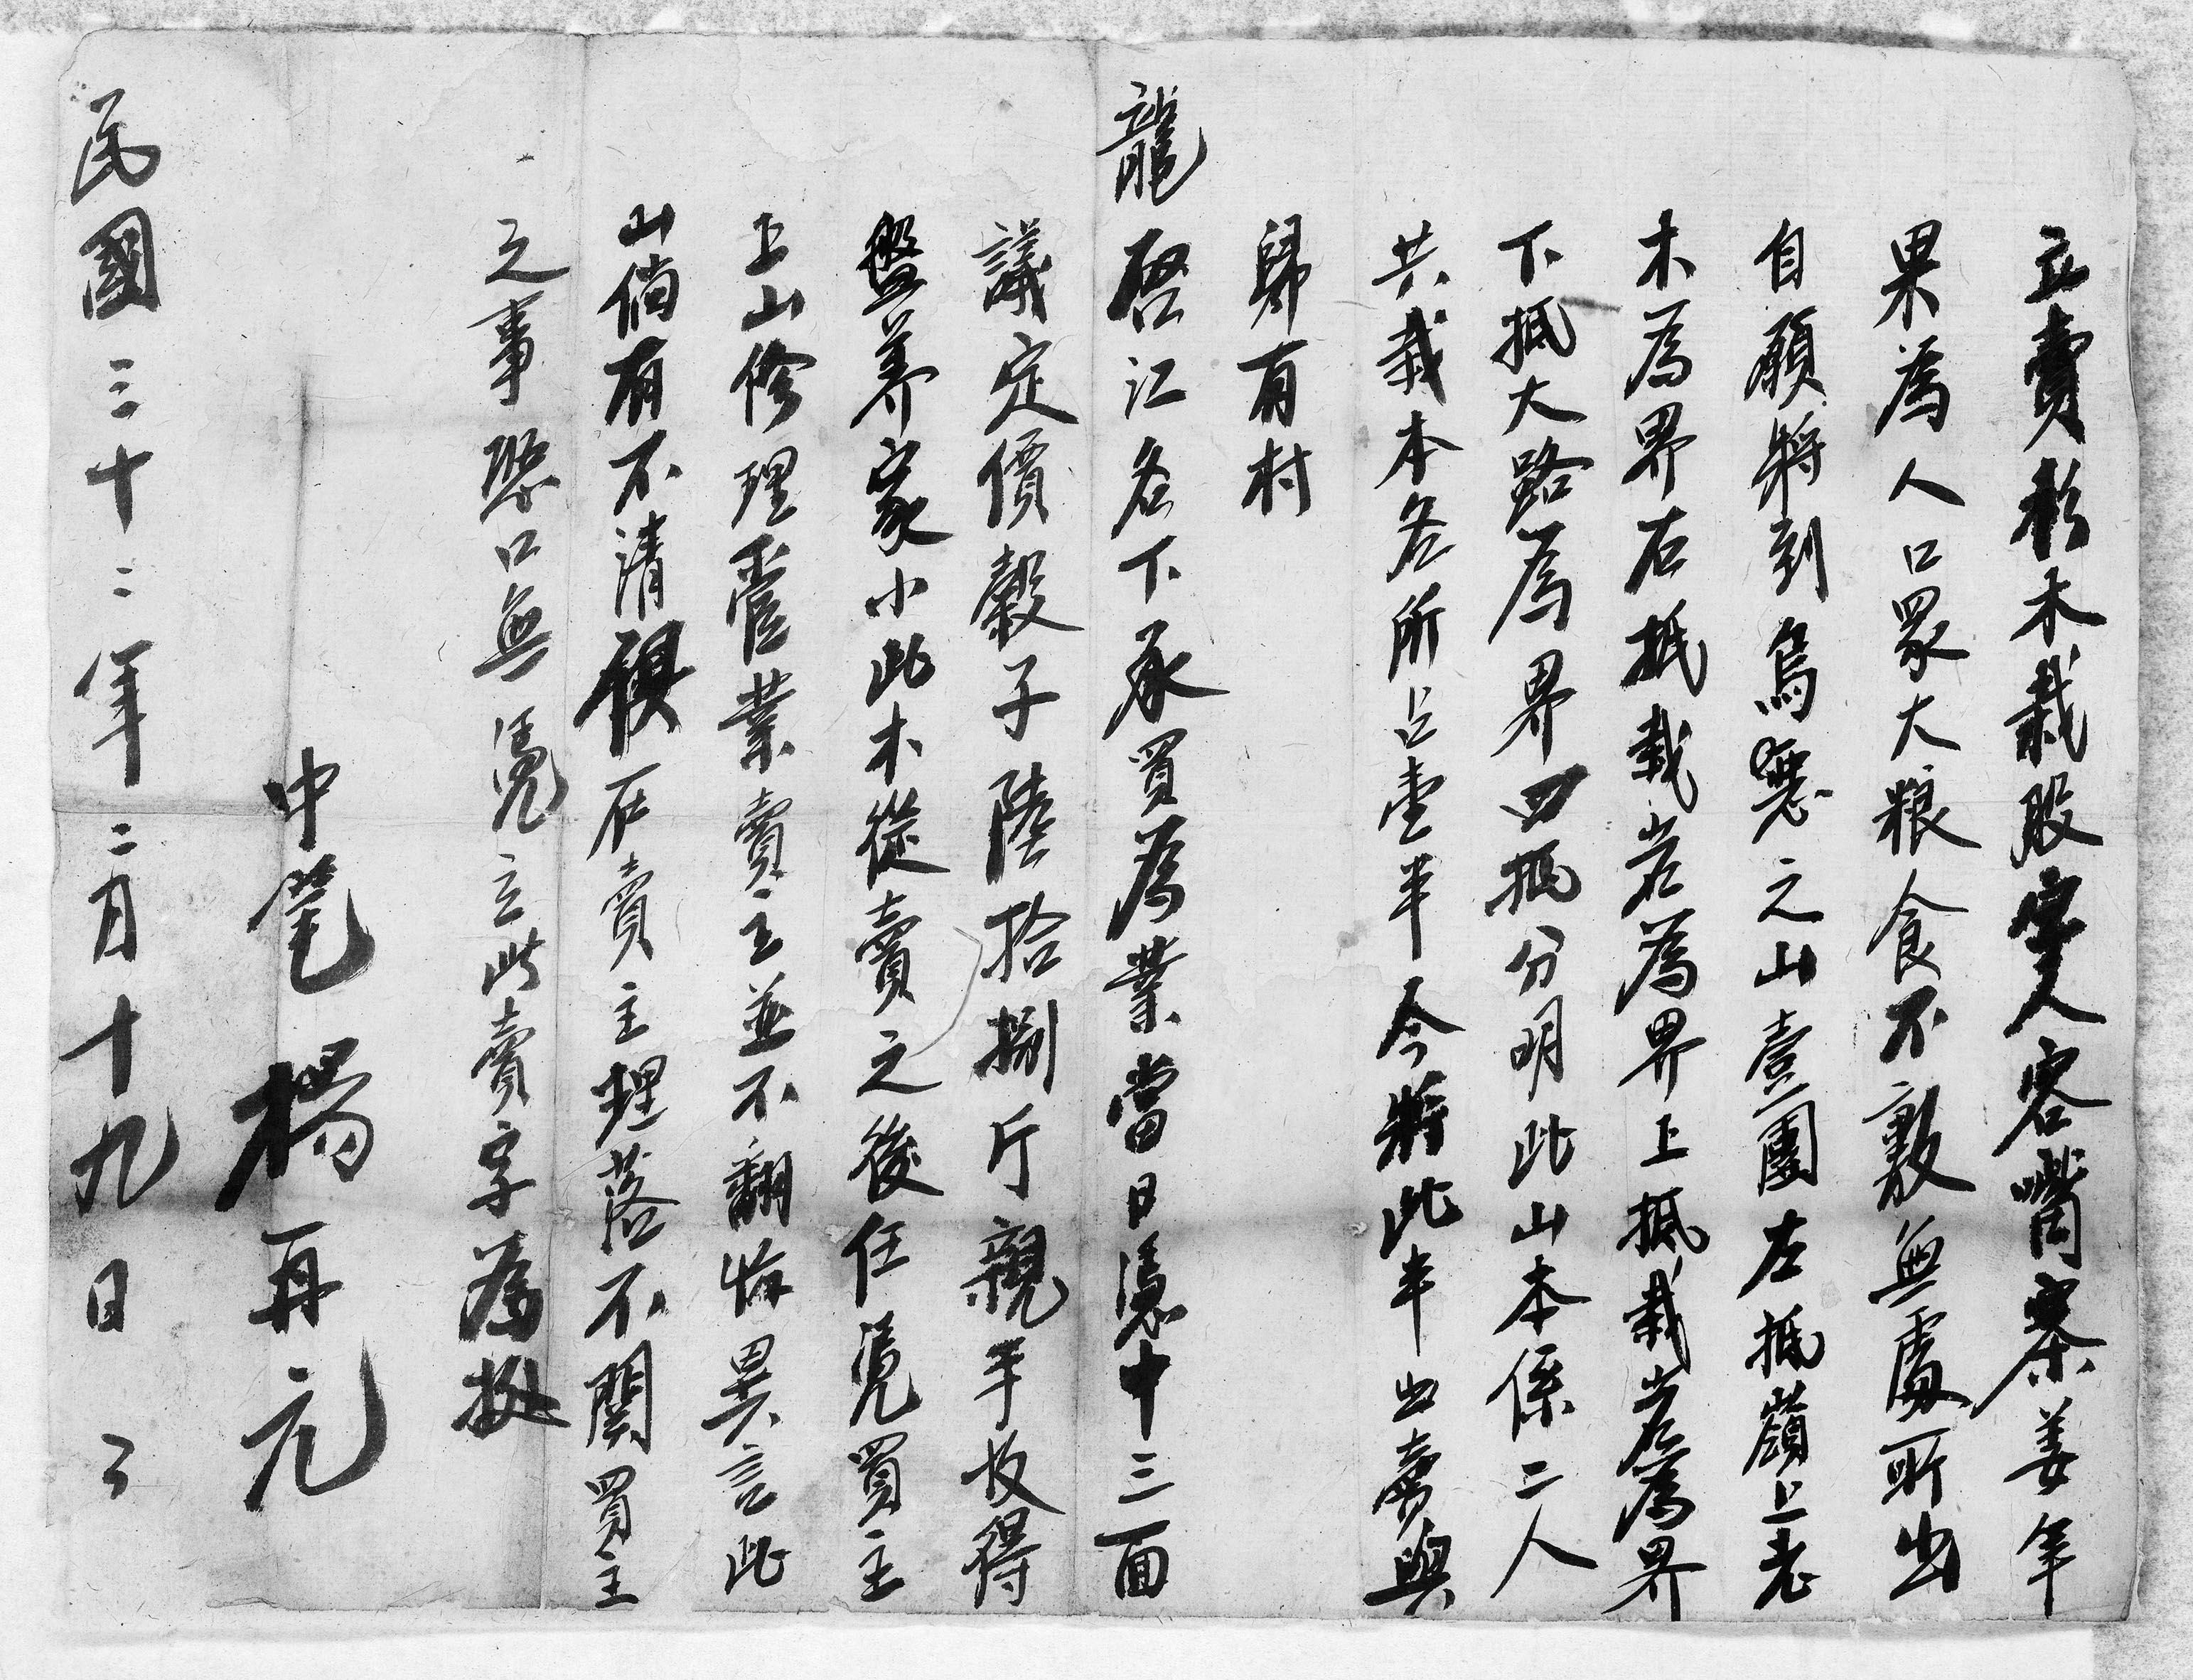 立賣杉木栽股字人容嘴寨姜年
果為人口眾大粮食不敷無處所出
自願將到烏漫之山壹團左抵嶺上老
木為界右抵栽岩為界上抵栽岩為界
下抵大路為界四抵分明此山本係二人
共栽本名所占壹半今將此半出賣與
歸有村
龍啓江名下承買為業當日憑中三面
議定價穀子陸拾捌斤親手收得
盤养家小此木從賣之後任凴買主
上山修理管業賣主並不翻悔異言此
山倘有不清俱在賣主理落不関買主
之事恐口無凴立此賣字為據
中笔 楊再元
民國三十二年二月十九日立